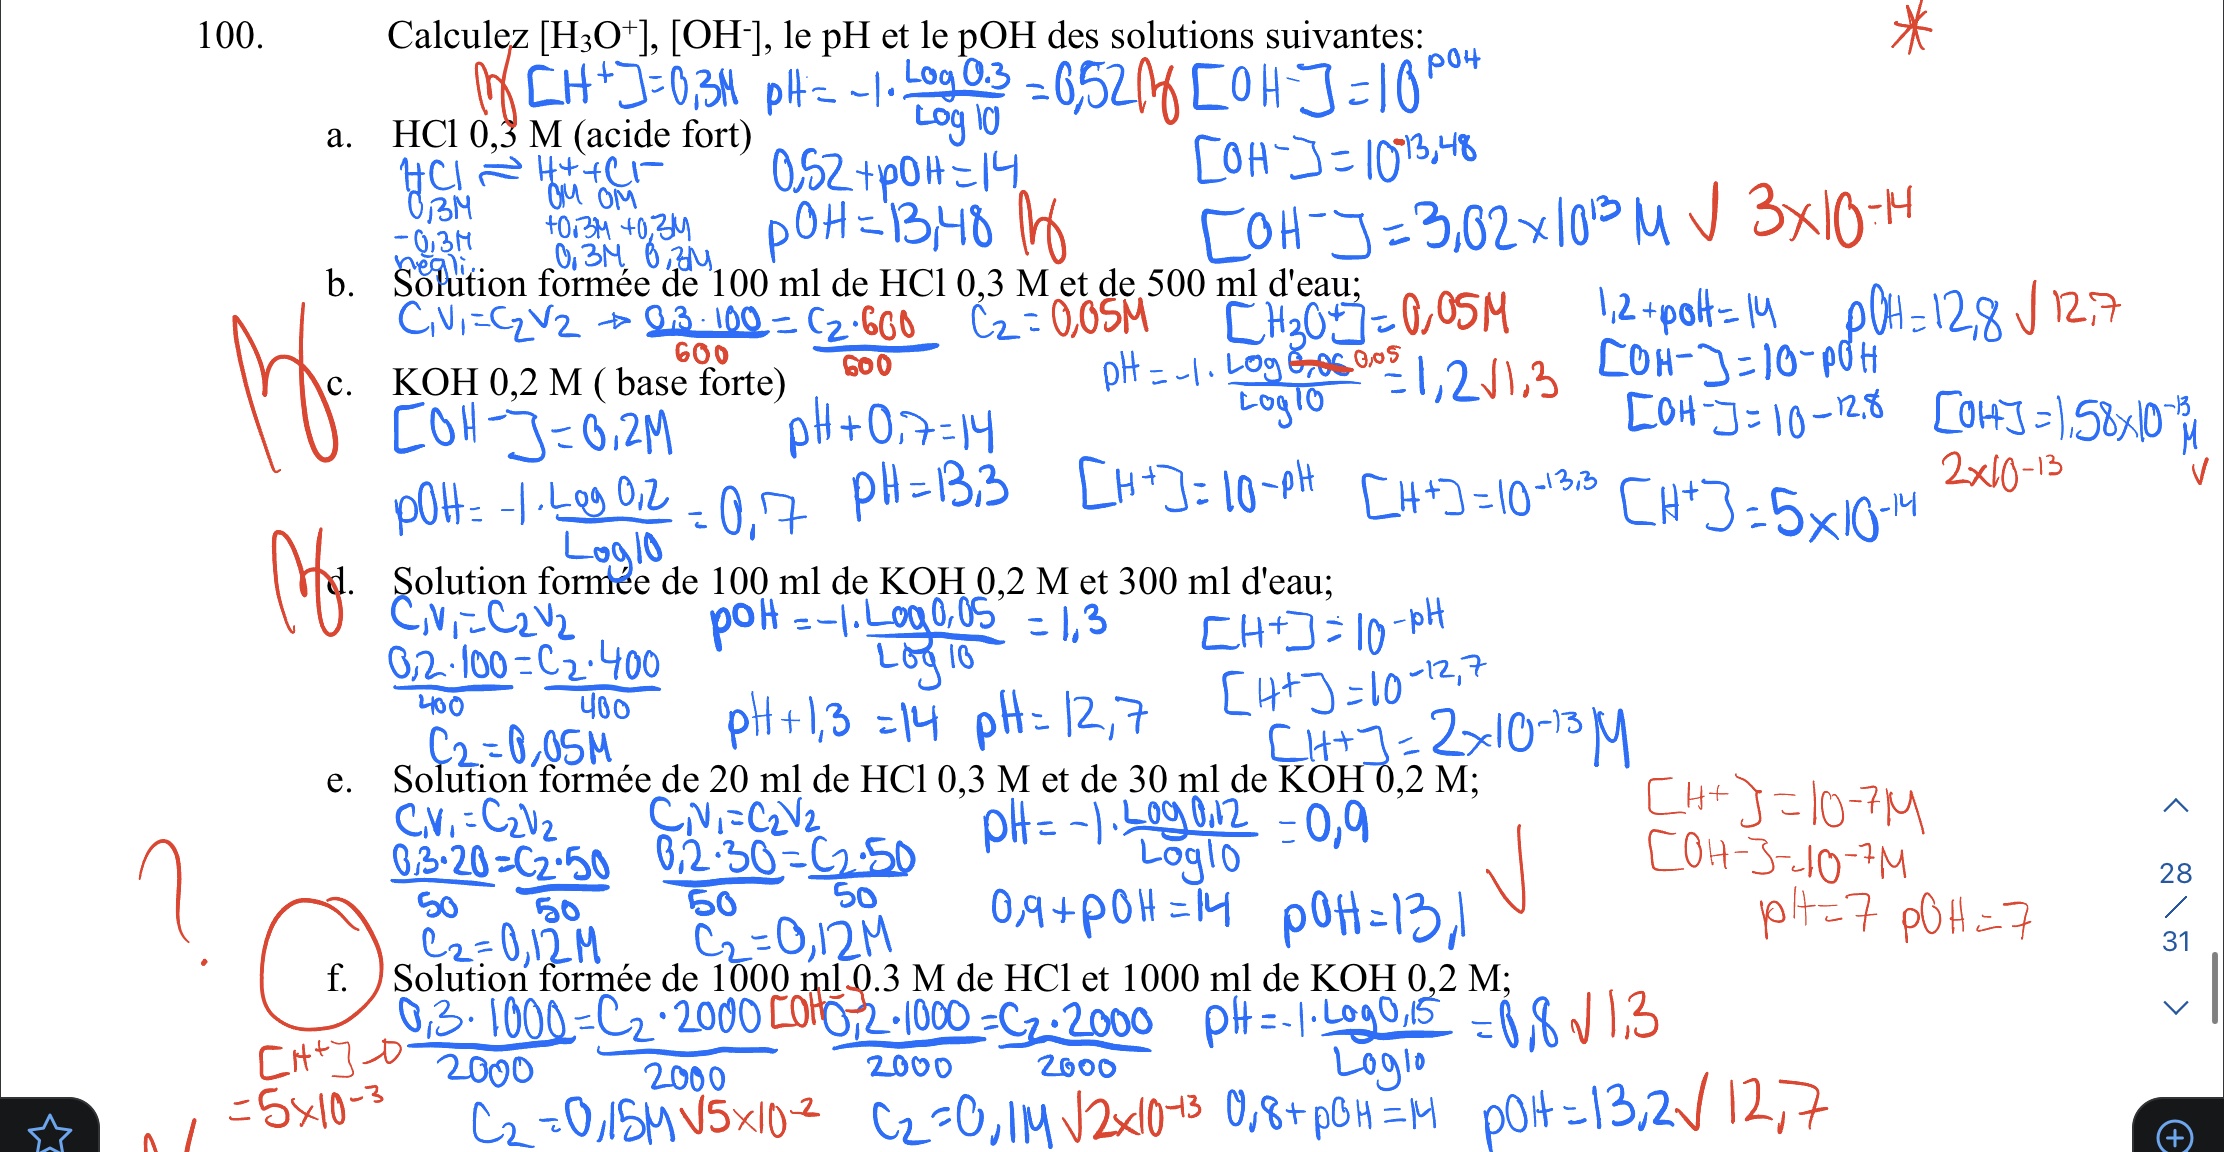 100. Calculez [H₃O⁺], [OH⁻], le pH et le pOH des solutions suivantes:
[H+]=0,3M pH= -1· Log 0.3 / Log 10 = 0,52 [OH-]=10^pOH
a. HCl 0,3 M (acide fort)
[OH-]=10^-13,48
HCl ⇌ H+ + Cl-
0,3M 0M 0M
-0,3M +0,3M +0,3M
négli. 0,3M 0,3M
0,52+pOH=14
pOH=13,48
[OH-]=3,02x10^13 M √ 3x10^-14
b. Solution formée de 100 ml de HCl 0,3 M et de 500 ml d'eau;
C₁V₁=C₂V₂ → 0,3·100 / 600 = C₂·600 / 600 C₂=0,05M [H₃O+]=0,05M 1,2+pOH=14 pOH=12,8 √ 12,7
pH=-1· Log 0,05 / Log10 =1,2 √ 1,3 [OH-]=10^-pOH
[OH-]=10^-12,8 [OH-]=1,58x10^-13 M √
2x10^-13
c. KOH 0,2 M ( base forte)
[OH-]=0,2M pH+0,7=14
pOH=-1· Log 0,2 / Log10 = 0,7 pH=13,3 [H+]=10^-pH [H+]=10^-13,3 [H+]=5x10^-14
d. Solution formée de 100 ml de KOH 0,2 M et 300 ml d'eau;
C₁V₁=C₂V₂ pOH=-1· Log 0,05 / Log 10 = 1,3 [H+]=10^-pH
0,2·100 / 400 = C₂·400 / 400 [H+]=10^-12,7
C₂=0,05M pH+1,3=14 pH=12,7 [H+]=2x10^-13 M
e. Solution formée de 20 ml de HCl 0,3 M et de 30 ml de KOH 0,2 M;
C₁V₁=C₂V₂ C₁V₁=C₂V₂ pH=-1· Log 0,12 / Log10 =0,9 √
0,3·20 / 50 = C₂·50 / 50 0,2·30 / 50 = C₂·50 / 50
C₂=0,12M C₂=0,12M 0,9+pOH=14 pOH=13,1
[H+]=10^-7M
[OH-]=10^-7M
pH=7 pOH=7
?
f. Solution formée de 1000 ml 0.3 M de HCl et 1000 ml de KOH 0,2 M;
0,3·1000 / 2000 = C₂·2000 / 2000 [OH-] 0,2·1000 / 2000 = C₂·2000 / 2000 pH=-1· Log 0,15 / Log10 =0,8 √ 1,3
[H+]
=5x10^-3
C₂=0,15M √ 5x10^-2 C₂=0,1M √ 2x10^-13 0,8+pOH=14 pOH=13,2 √ 12,7
28
/
31